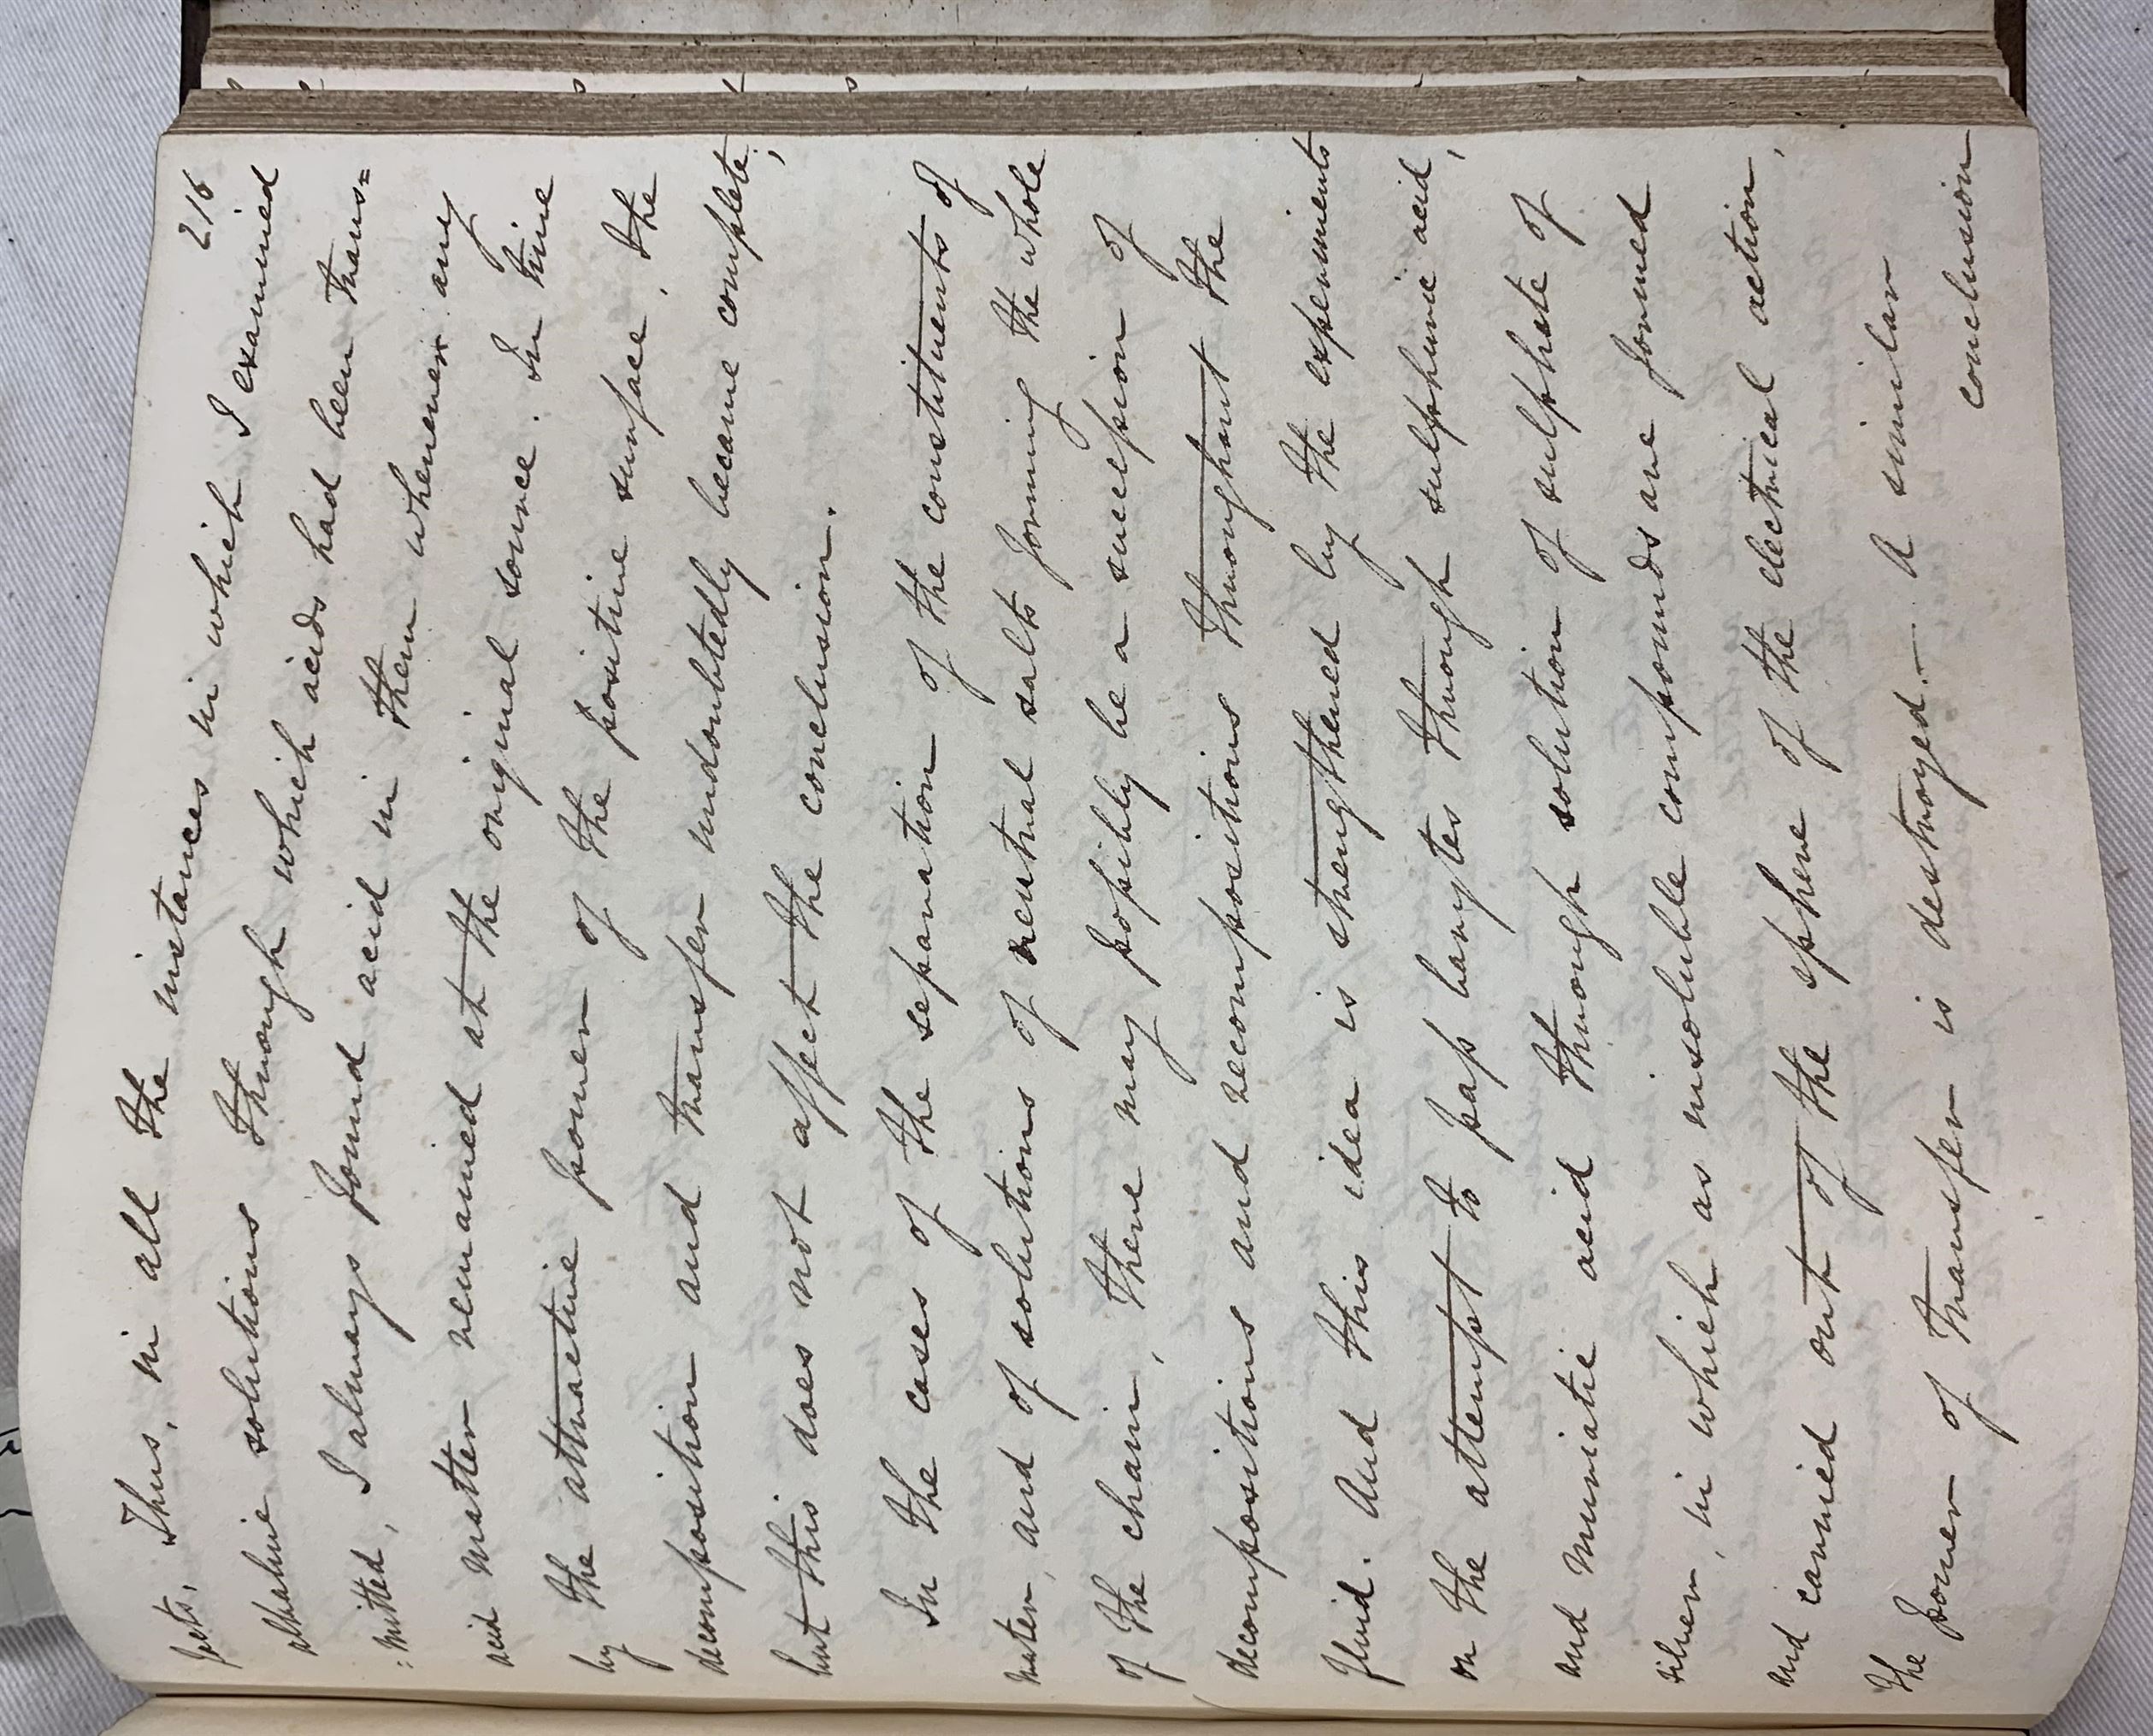 216
facts. Thus, in all the instances in which I examined
alkaline solutions through which acids had been trans=
=mitted, I always found acid in them whenever any
acid matter remained at the original source. In time
by the attractive power of the positive surface, the
decomposition and transfer undoubtedly became complete;
but this does not affect the conclusion.
In the cases of the separation of the constituents of
water, and of solutions of neutral salts forming the whole
of the chain, there may possibly be a succession of
decompositions and recompositions throughout the
fluid. And this idea is strengthened by the experiments
on the attempt to pass barytes through sulphuric acid,
and muriatic acid through solution of sulphate of
silver, in which as insoluble compounds are formed
and carried out of the sphere of the electrical action,
the power of transfer is destroyed. — A similar
conclusion